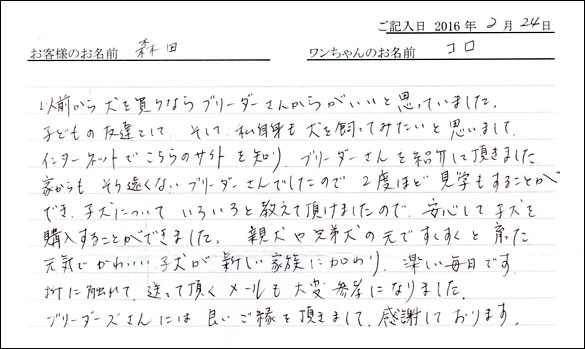 ご記入日 2016年 2月 24日
お客様のお名前 森田 ワンちゃんのお名前 コロ
以前から犬を買うならブリーダーさんからがいいと思っていました。
子どもの友達として、そして、私自身も犬を飼ってみたいと思いまして、
インターネットでこちらのサイトを知り、ブリーダーさんを紹介して頂きました
家からもそう遠くないブリーダーさんでしたので2度ほど見学もすることが
でき、子犬についていろいろと教えて頂けましたので、安心して子犬を
購入することができました。親犬や兄弟犬の元ですくすくと育った
元気でかわいい子犬が新しい家族に加わり、楽しい毎日です。
折に触れて、送って頂くメールも大変参考になりました。
ブリーダーズさんには良いご縁を頂きまして、感謝しております。